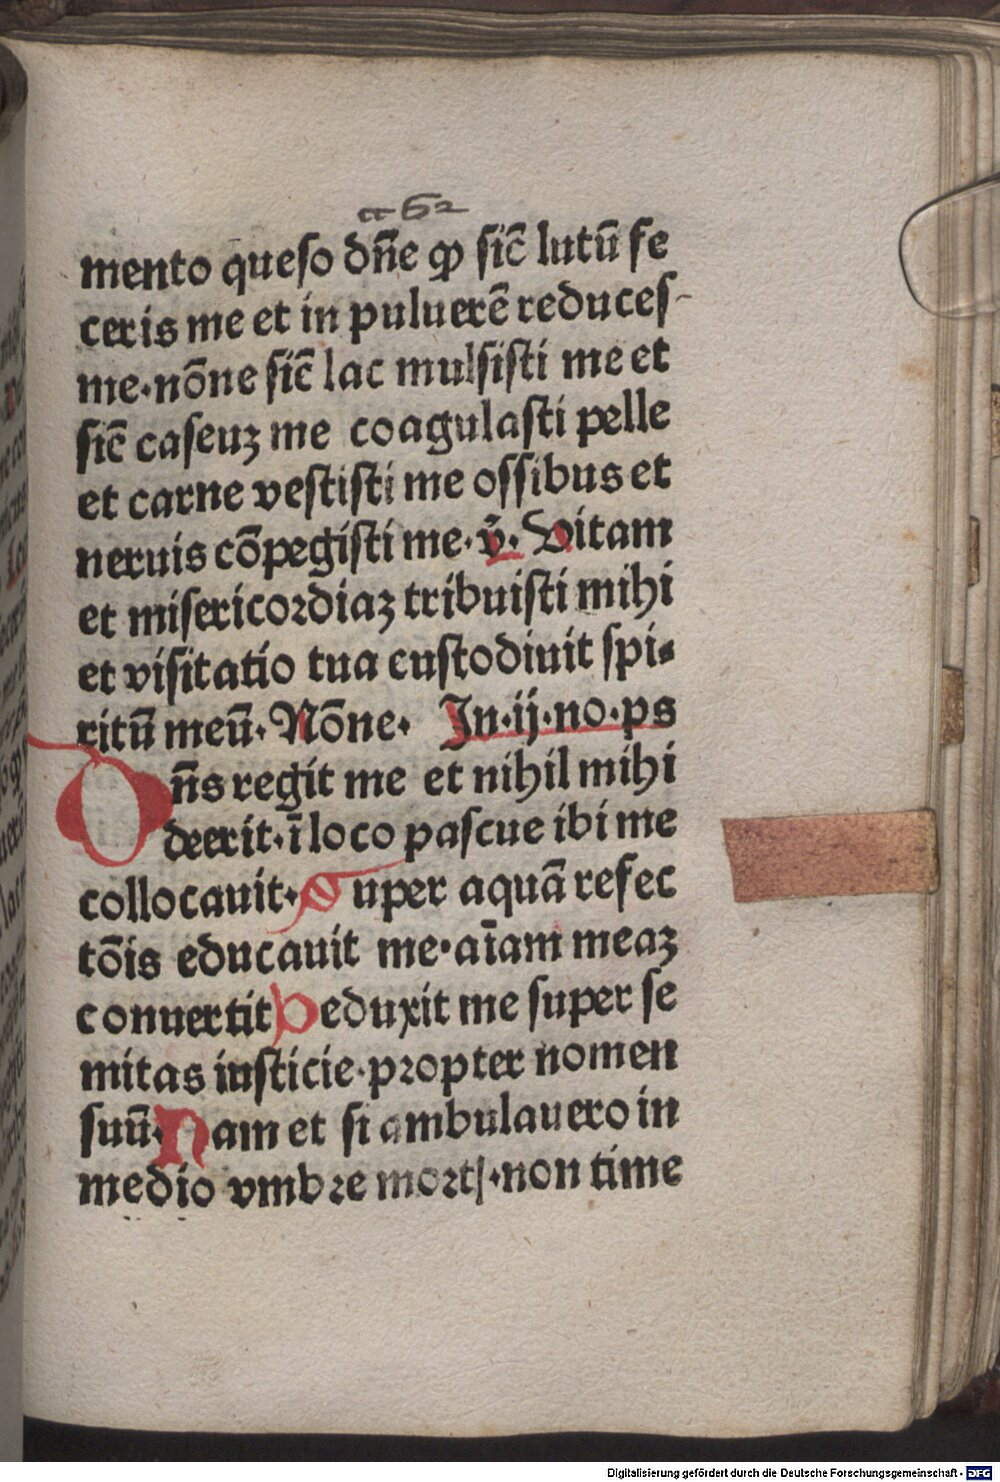 cc62
mento queso dn̄e ꝙ sic̄ lutū fe
ceris me et in puluerē reduces
me·nōne sic̄ lac mulsisti me et
sic̄ caseuꝫ me coagulasti pelle
et carne vestisti me ossibus et
neruis cōpegisti me·v̄·Vitam
et misericordiaꝫ tribuisti mihi
et visitatio tua custodiuit spi⸗
ritū meū·Nōne· In·ij·no·ps
Dn̄s regit me et nihil mihi
deerit·ī loco pascue ibi me
collocauit·Super aquā refec
tōis educauit me·aīam meaꝫ
conuertit Deduxit me super se
mitas iusticie·propter nomen
suū·Nam et si ambulauero in
medio vmbre mortꝭ·non time
Digitalisierung gefördert durch die Deutsche Forschungsgemeinschaft - DFG